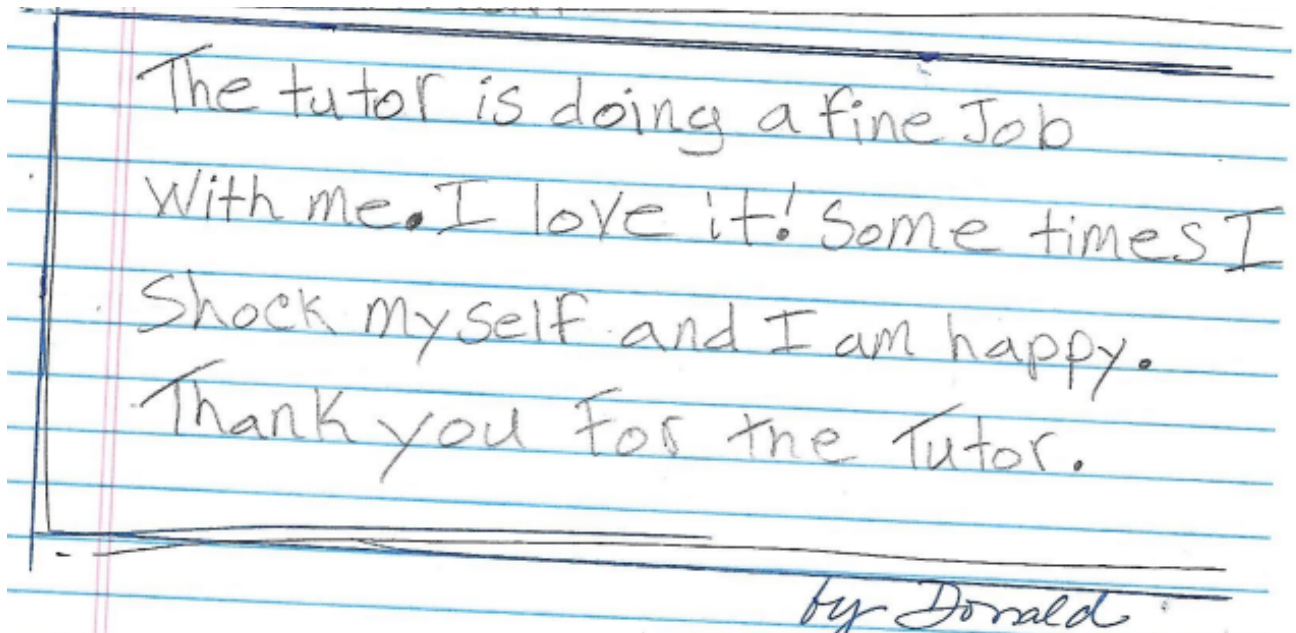 The tutor is doing a fine Job
With me. I love it! Some times I
Shock myself and I am happy.
Thank you For the Tutor.
by Donald